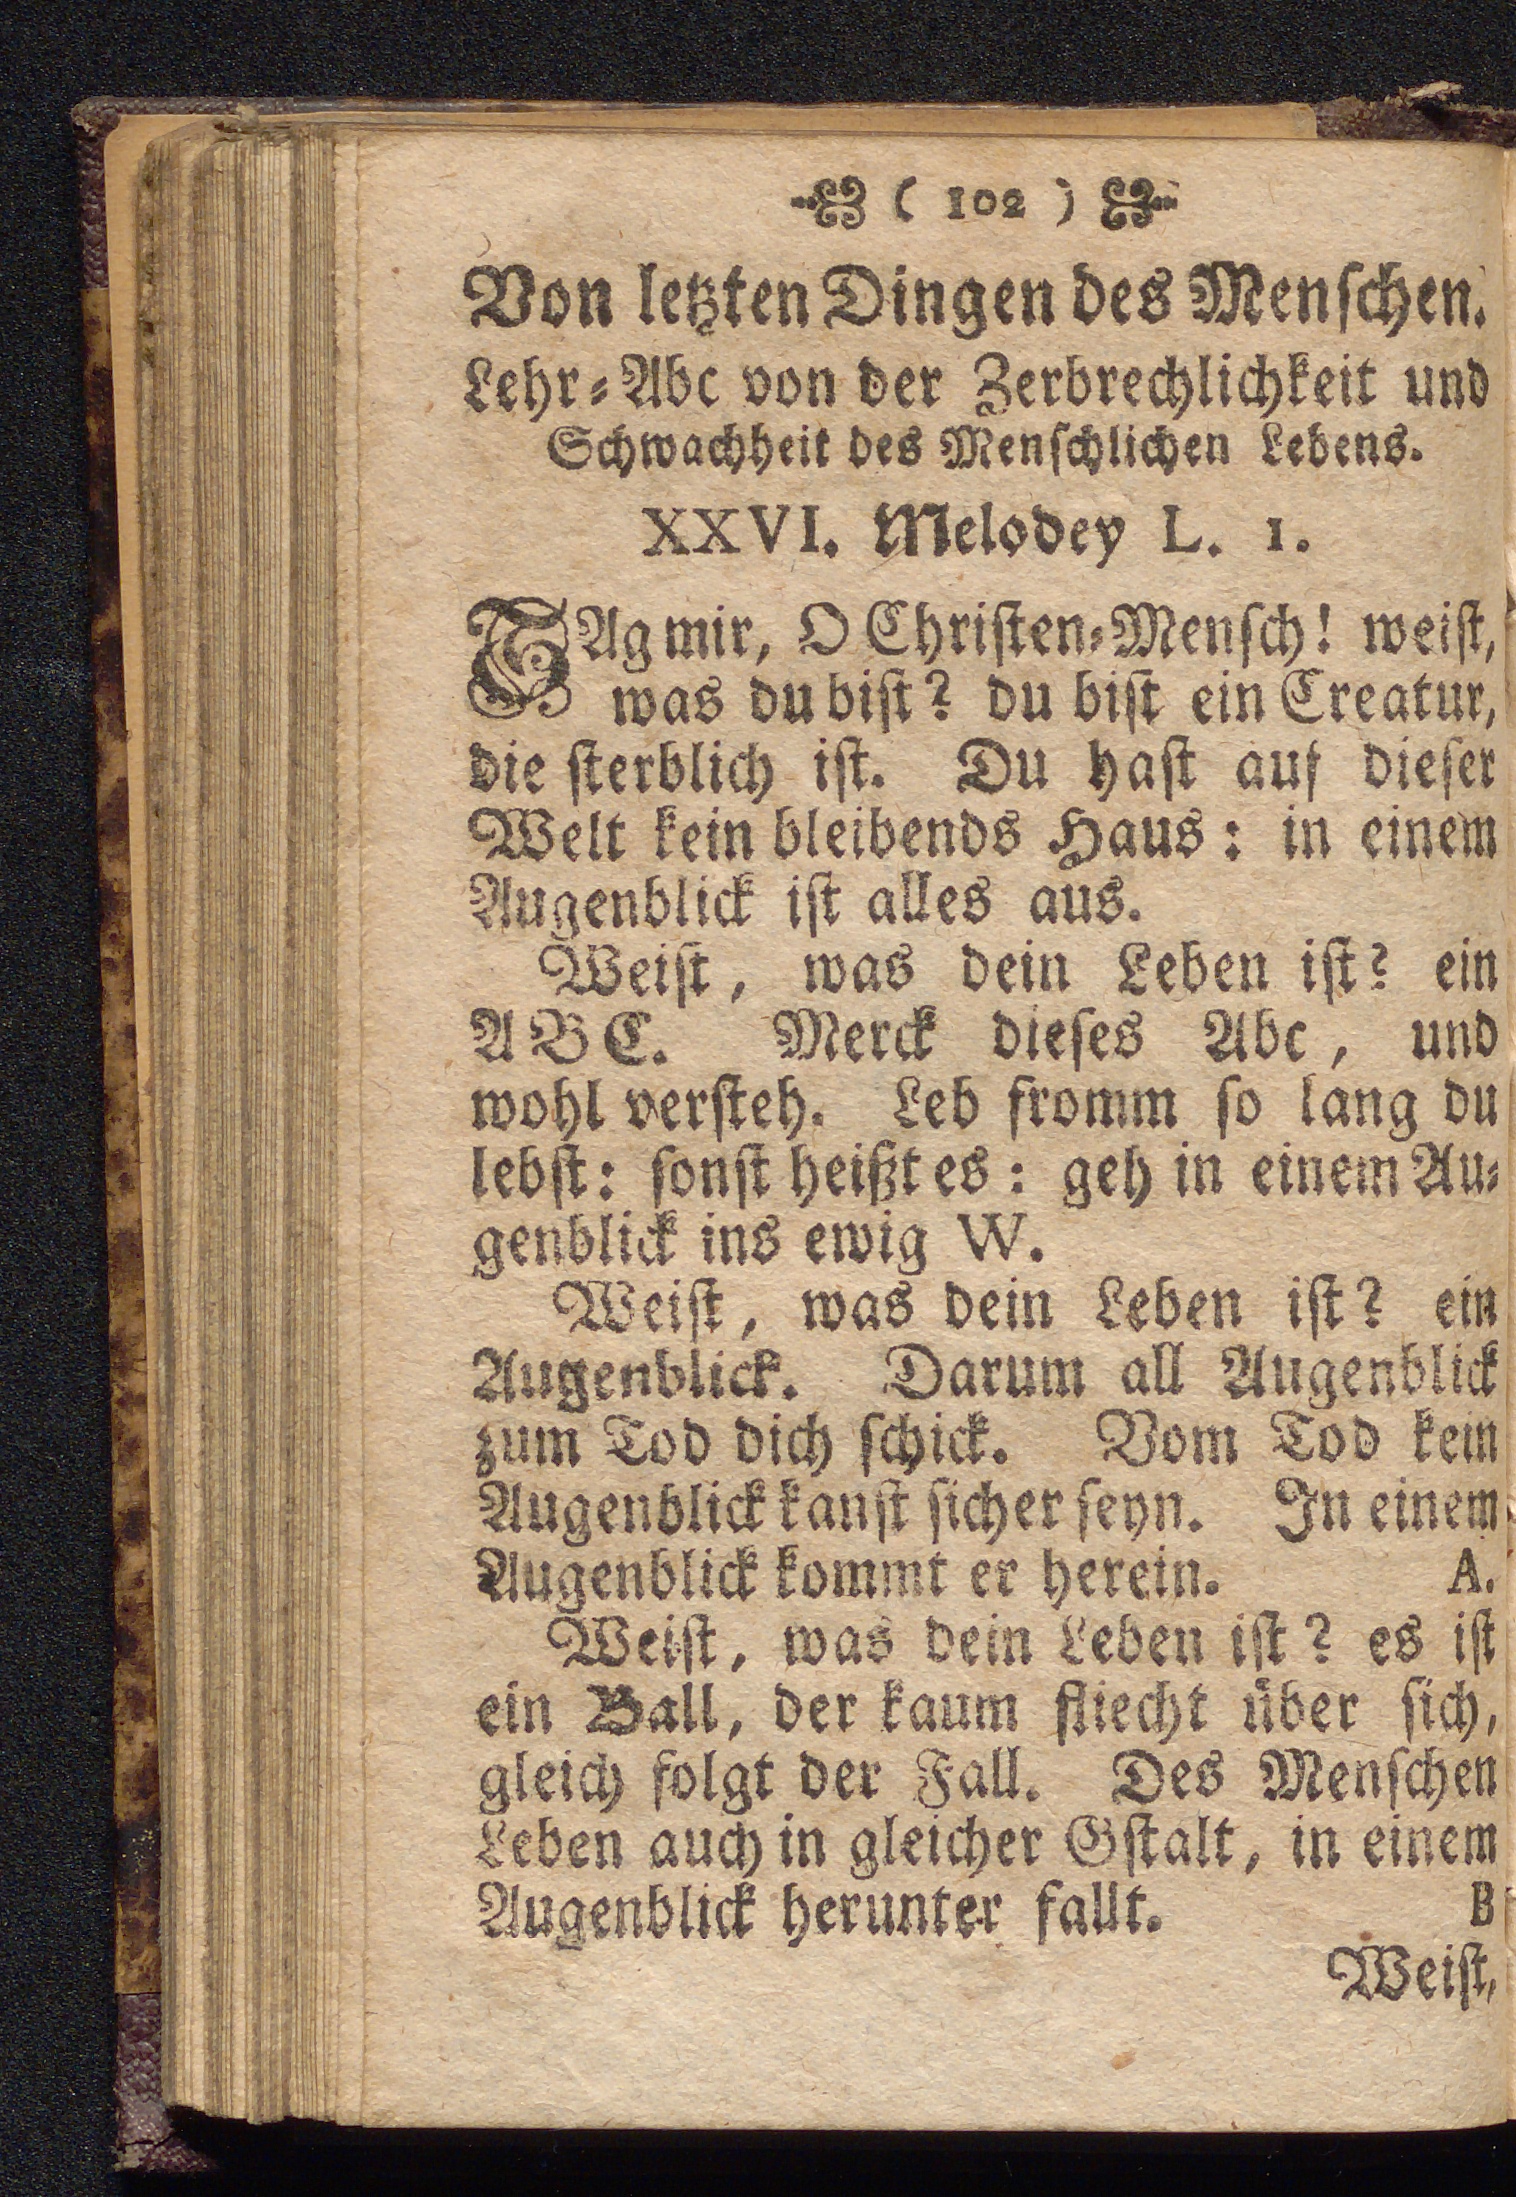 ( 102 )
Von letzten Dingen des Menschen.
Lehr-Abc von der Zerbrechlichkeit und
Schwachheit des Menschlichen Lebens.
XXVI. Melodey L. 1.
SAg mir, O Christen-Mensch! weist,
was du bist? du bist ein Creatur,
die sterblich ist. Du hast auf dieser
Welt kein bleibends Haus: in einem
Augenblick ist alles aus.
Weist, was dein Leben ist? ein
ABC. Merck dieses Abc, und
wohl versteh. Leb fromm so lang du
lebst: sonst heißt es: geh in einem Au-
genblick ins ewig W.
Weist, was dein Leben ist? ein
Augenblick. Darum all Augenblick
zum Tod dich schick. Vom Tod kein
Augenblick kanst sicher seyn. In einem
Augenblick kommt er herein. A.
Weist, was dein Leben ist? es ist
ein Ball, der kaum fliecht über sich,
gleich folgt der Fall. Des Menschen
Leben auch in gleicher Gstalt, in einem
Augenblick herunter fallt. B
Weist,